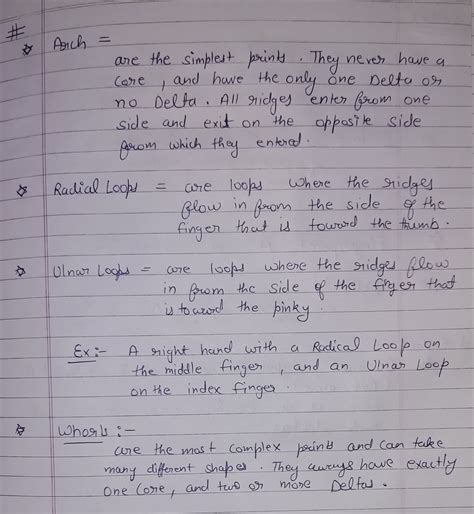 #
☆ Arch =
are the simplest prints. They never have a
Core, and have the only one Delta or
no Delta. All ridges enter from one
side and exit on the opposite side
from which they entered.
☆ Radial Loops = are loops where the ridges
flow in from the side of the
finger that is toward the thumb.
☆ Ulnar Loops = are loops where the ridges flow
in from the side of the finger that
is toward the pinky.
Ex:- A right hand with a Radical Loop on
the middle finger, and an Ulnar Loop
on the index finger.
☆ Whorls :-
are the most complex prints and can take
many different shapes. They always have exactly
one Core, and two or more Deltas.